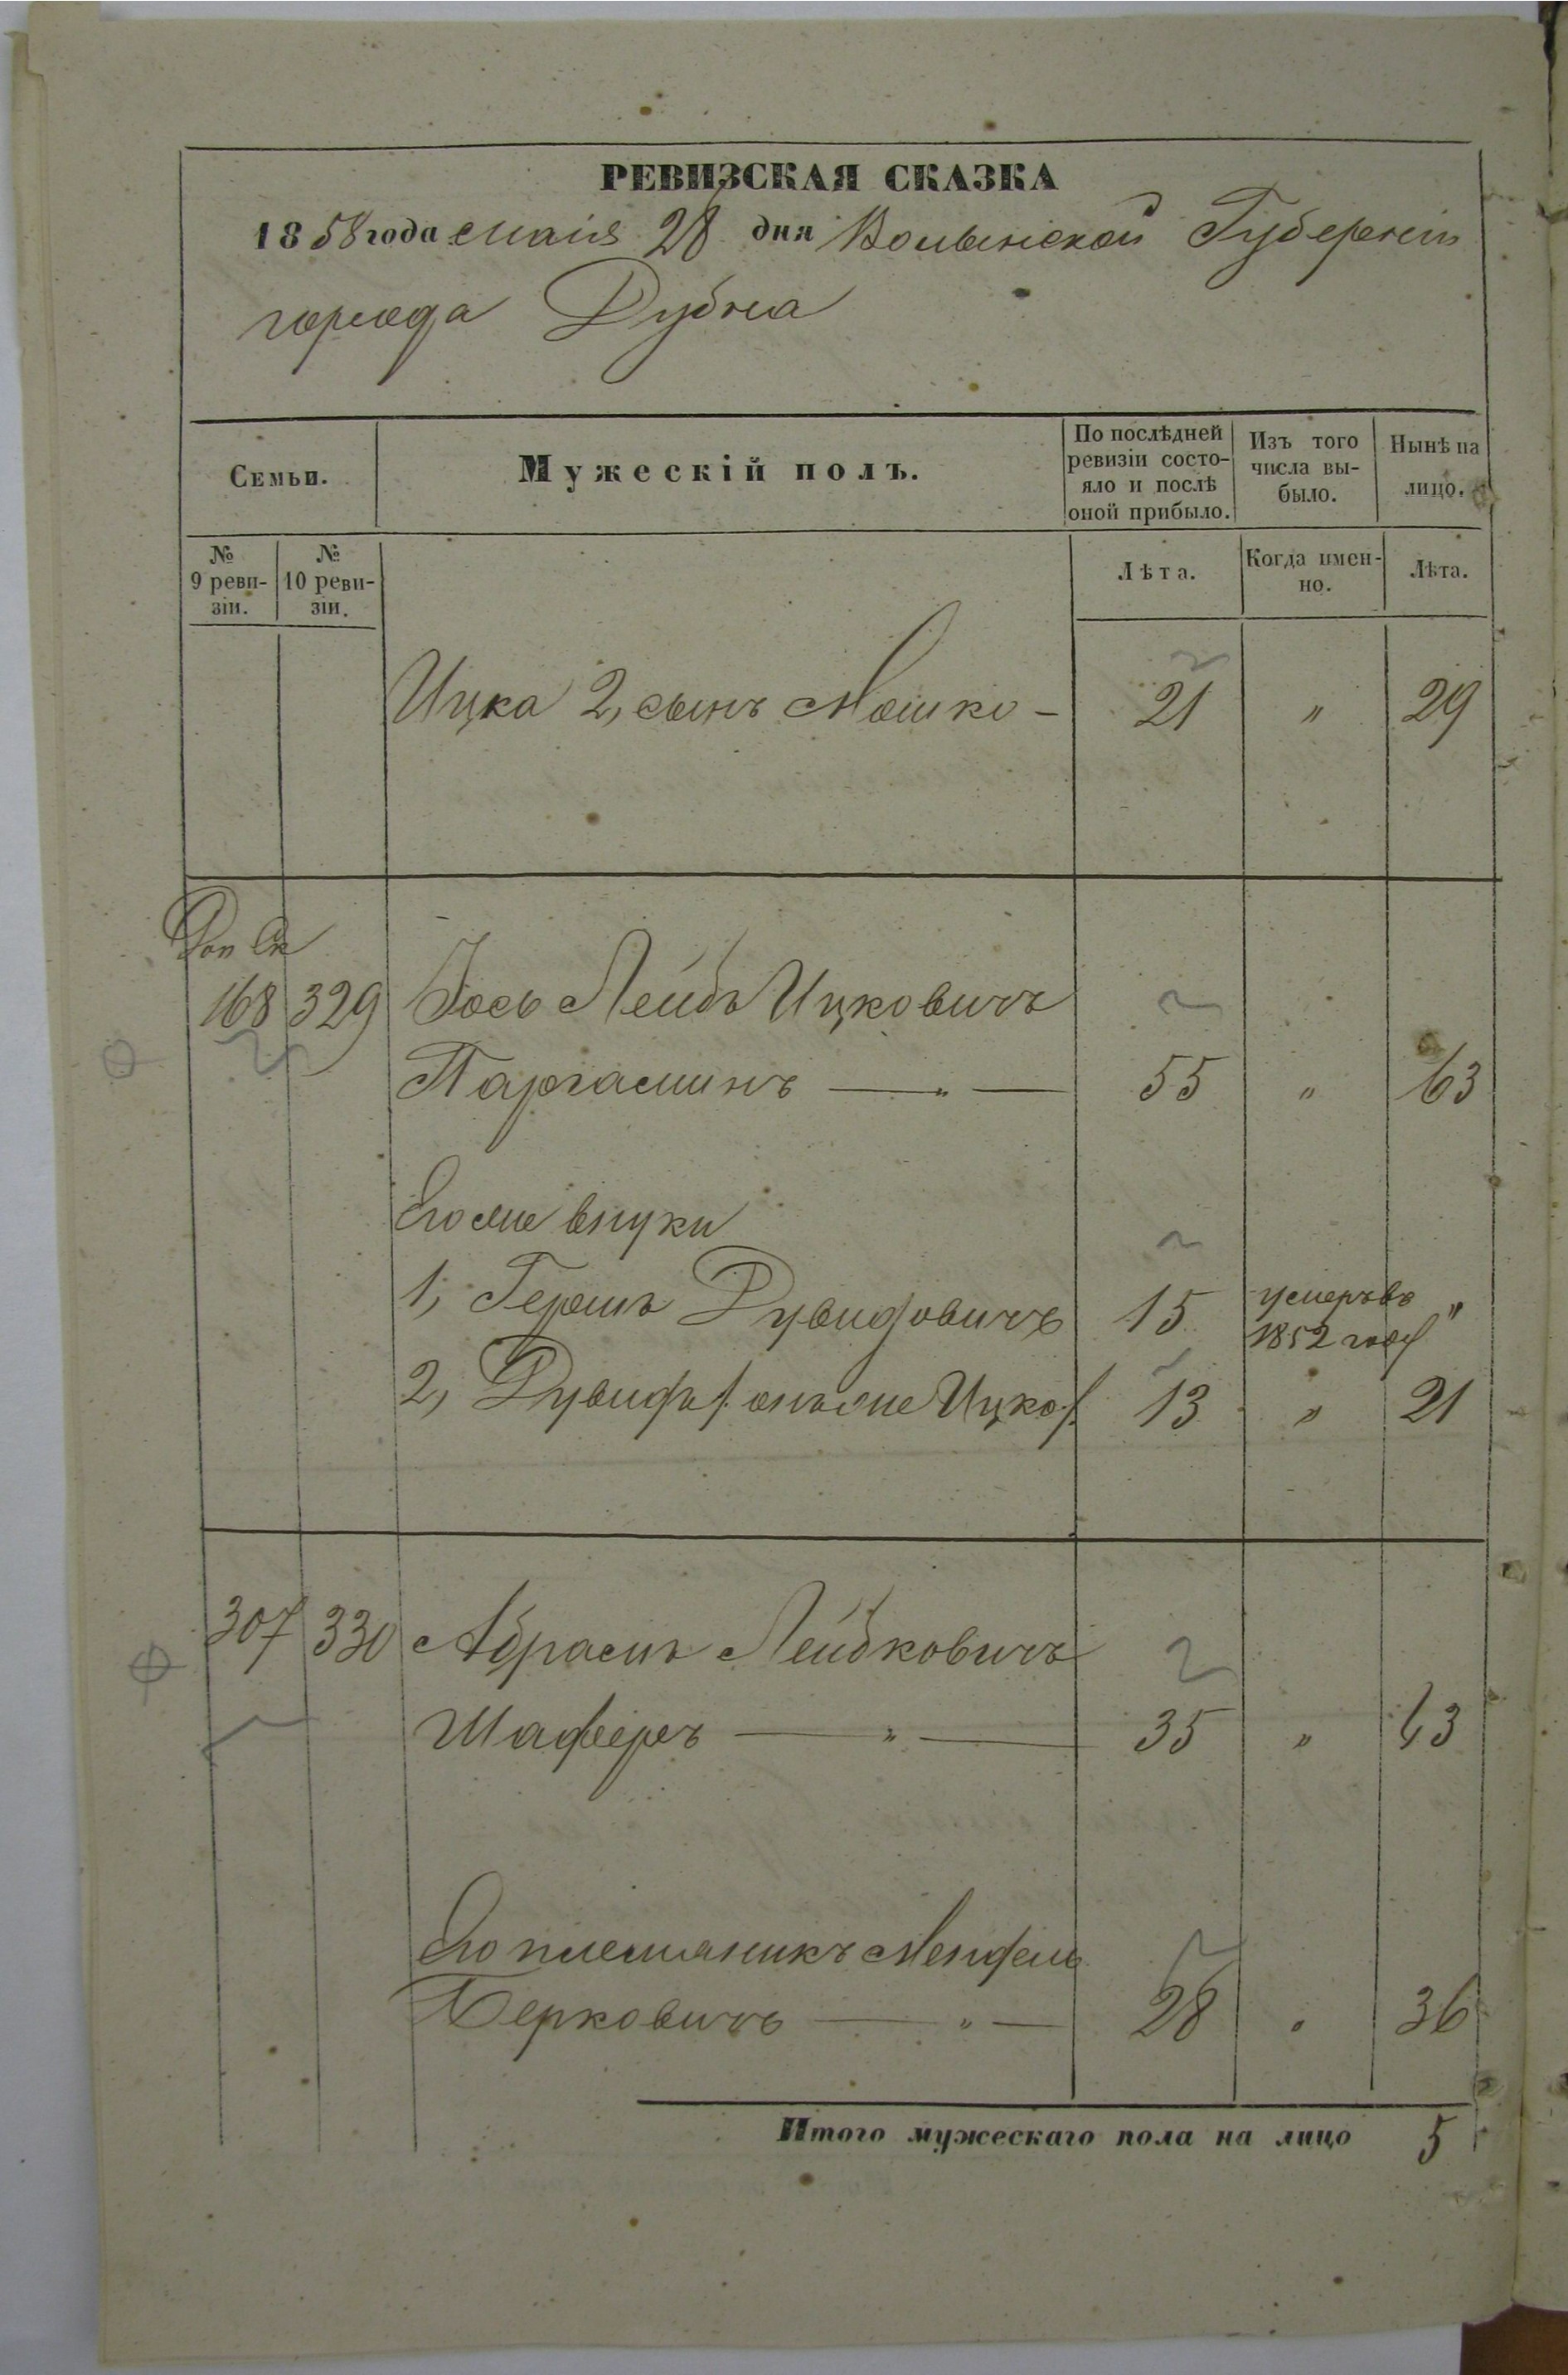 РЕВИЗСКАЯ СКАЗКА
1858 года маія 28 дня Волынской Губерніи
города Дубна
Семьи.
Мужескій полъ.
По послѣдней ревизіи состо-
яло и послѣ
оной прибыло.
Изъ того
числа вы-
было.
Нынѣ на
лицо.
№
9 реви-
зіи.
№
10 реви-
зіи.
Лѣта.
Когда имен-
но.
Лѣта.
Ицка 2, сынъ Мошко - 21 " 29
Доп Ск
168 329 Іось Лейбъ Ицковичъ
Паргаминъ — " — 55 " 63
Его же внуки
1, Гершъ Дувидовичъ 15 умеръ въ "
1852 году
2, Дувидъ /: онъ же Ицко :/ 13 " 21
307 330 Абрамъ Лейбковичъ
Шафиръ — " — 35 " 43
Его племяникъ Мендель
Берковичъ — " — 28 " 36
Итого мужескаго пола на лицо 5